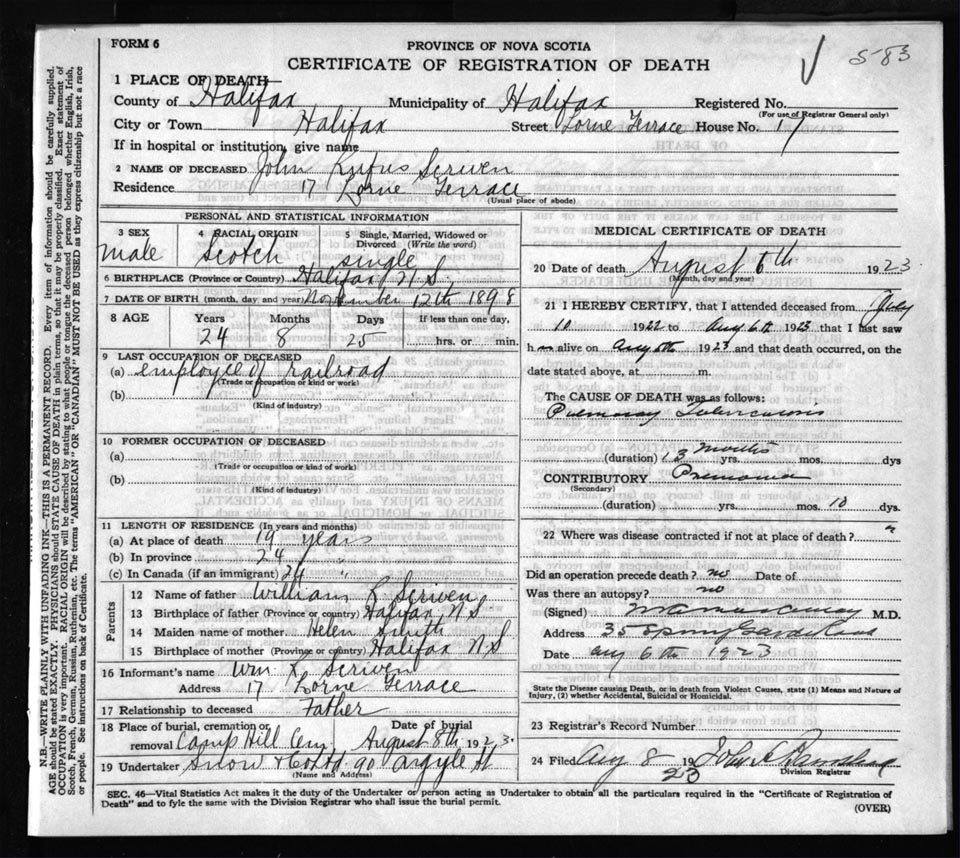 FORM 6
S-83
PROVINCE OF NOVA SCOTIA
CERTIFICATE OF REGISTRATION OF DEATH
1 PLACE OF DEATH
County of Halifax Municipality of Halifax Registered No.
(For use of Registrar General only)
City or Town Halifax Street Lorne Terrace House No. 17
If in hospital or institution, give name
2 NAME OF DECEASED John Rufus Scriven
Residence 17 Lorne Terrace
(Usual place of abode)
PERSONAL AND STATISTICAL INFORMATION
3 SEX 4 RACIAL ORIGIN 5 Single, Married, Widowed or Divorced (Write the word)
male Scotch single
6 BIRTHPLACE (Province or Country) Halifax N S.
7 DATE OF BIRTH (month, day and year) November 12th 1898
8 AGE Years Months Days If less than one day,
24 8 25 hrs. or min.
9 LAST OCCUPATION OF DECEASED
(a) employee of railroad
(Trade or occupation or kind of work)
(b)
(Kind of industry)
10 FORMER OCCUPATION OF DECEASED
(a)
(Trade or occupation or kind of work)
(b)
(Kind of industry)
11 LENGTH OF RESIDENCE (In years and months)
(a) At place of death 19 years
(b) In province 24 "
(c) In Canada (if an immigrant) 24 "
Parents
12 Name of father William R Scriven
13 Birthplace of father (Province or country) Halifax N S
14 Maiden name of mother Helen Smith
15 Birthplace of mother (Province or country) Halifax N S
16 Informant's name Wm R. Scriven
Address 17 Lorne Terrace
17 Relationship to deceased Father
18 Place of burial, cremation or Date of burial
removal Camp Hill Cem August 8th 1923.
19 Undertaker Snow & Co Ltd 90 Argyle St
(Name and Address)
MEDICAL CERTIFICATE OF DEATH
20 Date of death August 6th 1923.
(Month, day and year)
21 I HEREBY CERTIFY, that I attended deceased from July
10 1922 to Aug 6th 1923 that I last saw
h alive on Aug 6th 1923 and that death occurred, on the
date stated above, at m.
The CAUSE OF DEATH was as follows:
Pulmonary Tuberculosis
(duration) 13 months yrs. mos. dys
CONTRIBUTORY Pneumonia
(Secondary)
(duration) yrs. mos. 10 dys.
22 Where was disease contracted if not at place of death?
Did an operation precede death? no Date of
Was there an autopsy? no
(Signed) M.D.
Address 35 Spring Garden Road
Date Aug 6th 1923
State the Disease causing Death, or in death from Violent Causes, state (1) Means and Nature of
Injury, (2) whether Accidental, Suicidal or Homicidal.
23 Registrar's Record Number
24 Filed Aug 8 1923 John A
Division Registrar
SEC. 46—Vital Statistics Act makes it the duty of the Undertaker or person acting as Undertaker to obtain all the particulars required in the "Certificate of Registration of
Death" and to fyle the same with the Division Registrar who shall issue the burial permit.
(OVER)
N.B.—WRITE PLAINLY WITH UNFADING INK—THIS IS A PERMANENT RECORD. Every item of information should be carefully supplied.
AGE should be stated EXACTLY. PHYSICIANS should STATE CAUSE OF DEATH in plain terms, so that it may be properly classified. Exact statement of
OCCUPATION is very important. RACIAL ORIGIN will be described by stating to what people or tongue the deceased person belonged whether English, Irish,
Scotch, French, German, Russian, Ruthenian, etc. The terms "AMERICAN" OR "CANADIAN" MUST NOT BE USED as they express citizenship but not a race
or people. See instructions on back of Certificate.